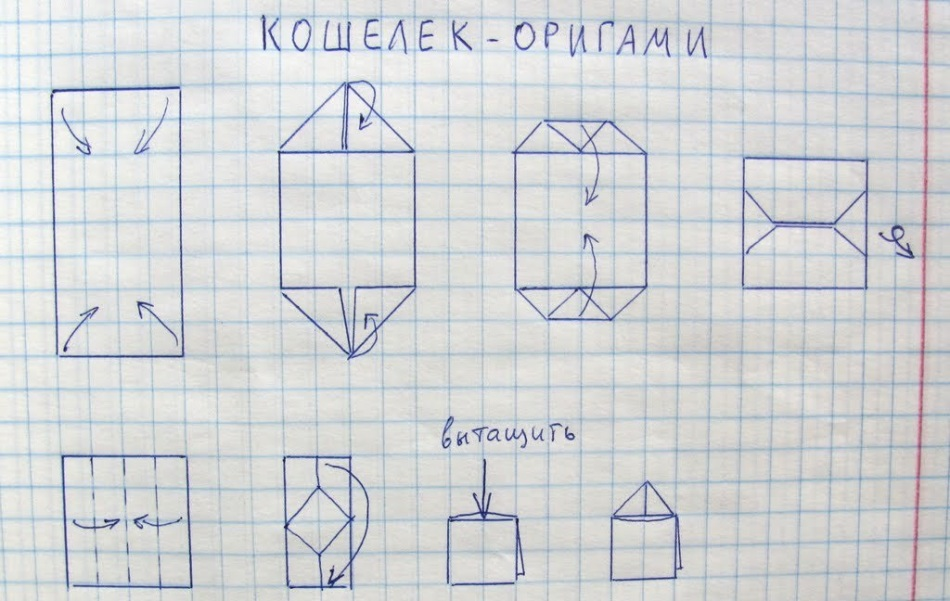 КОШЕЛЕК-ОРИГАМИ
вытащить